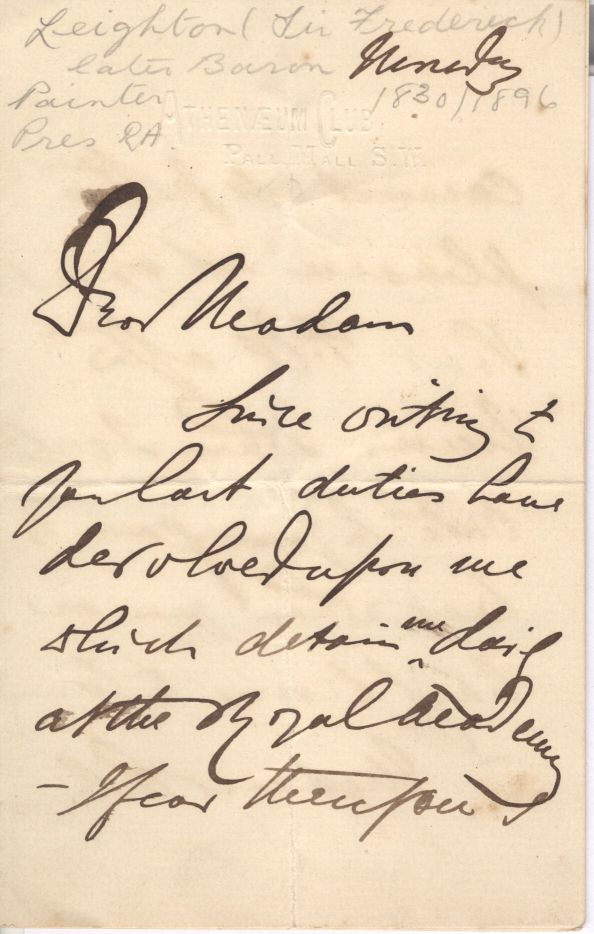 Leighton (Sir Frederick)
later Baron
Painter 1830/1896
Pres RA
ATHENÆUM CLUB
PALL MALL S.W.
Dear Madam
Since writing to
you last duties have
devolved upon me
which detain me daily
at the Royal Academy
- I fear therefore I